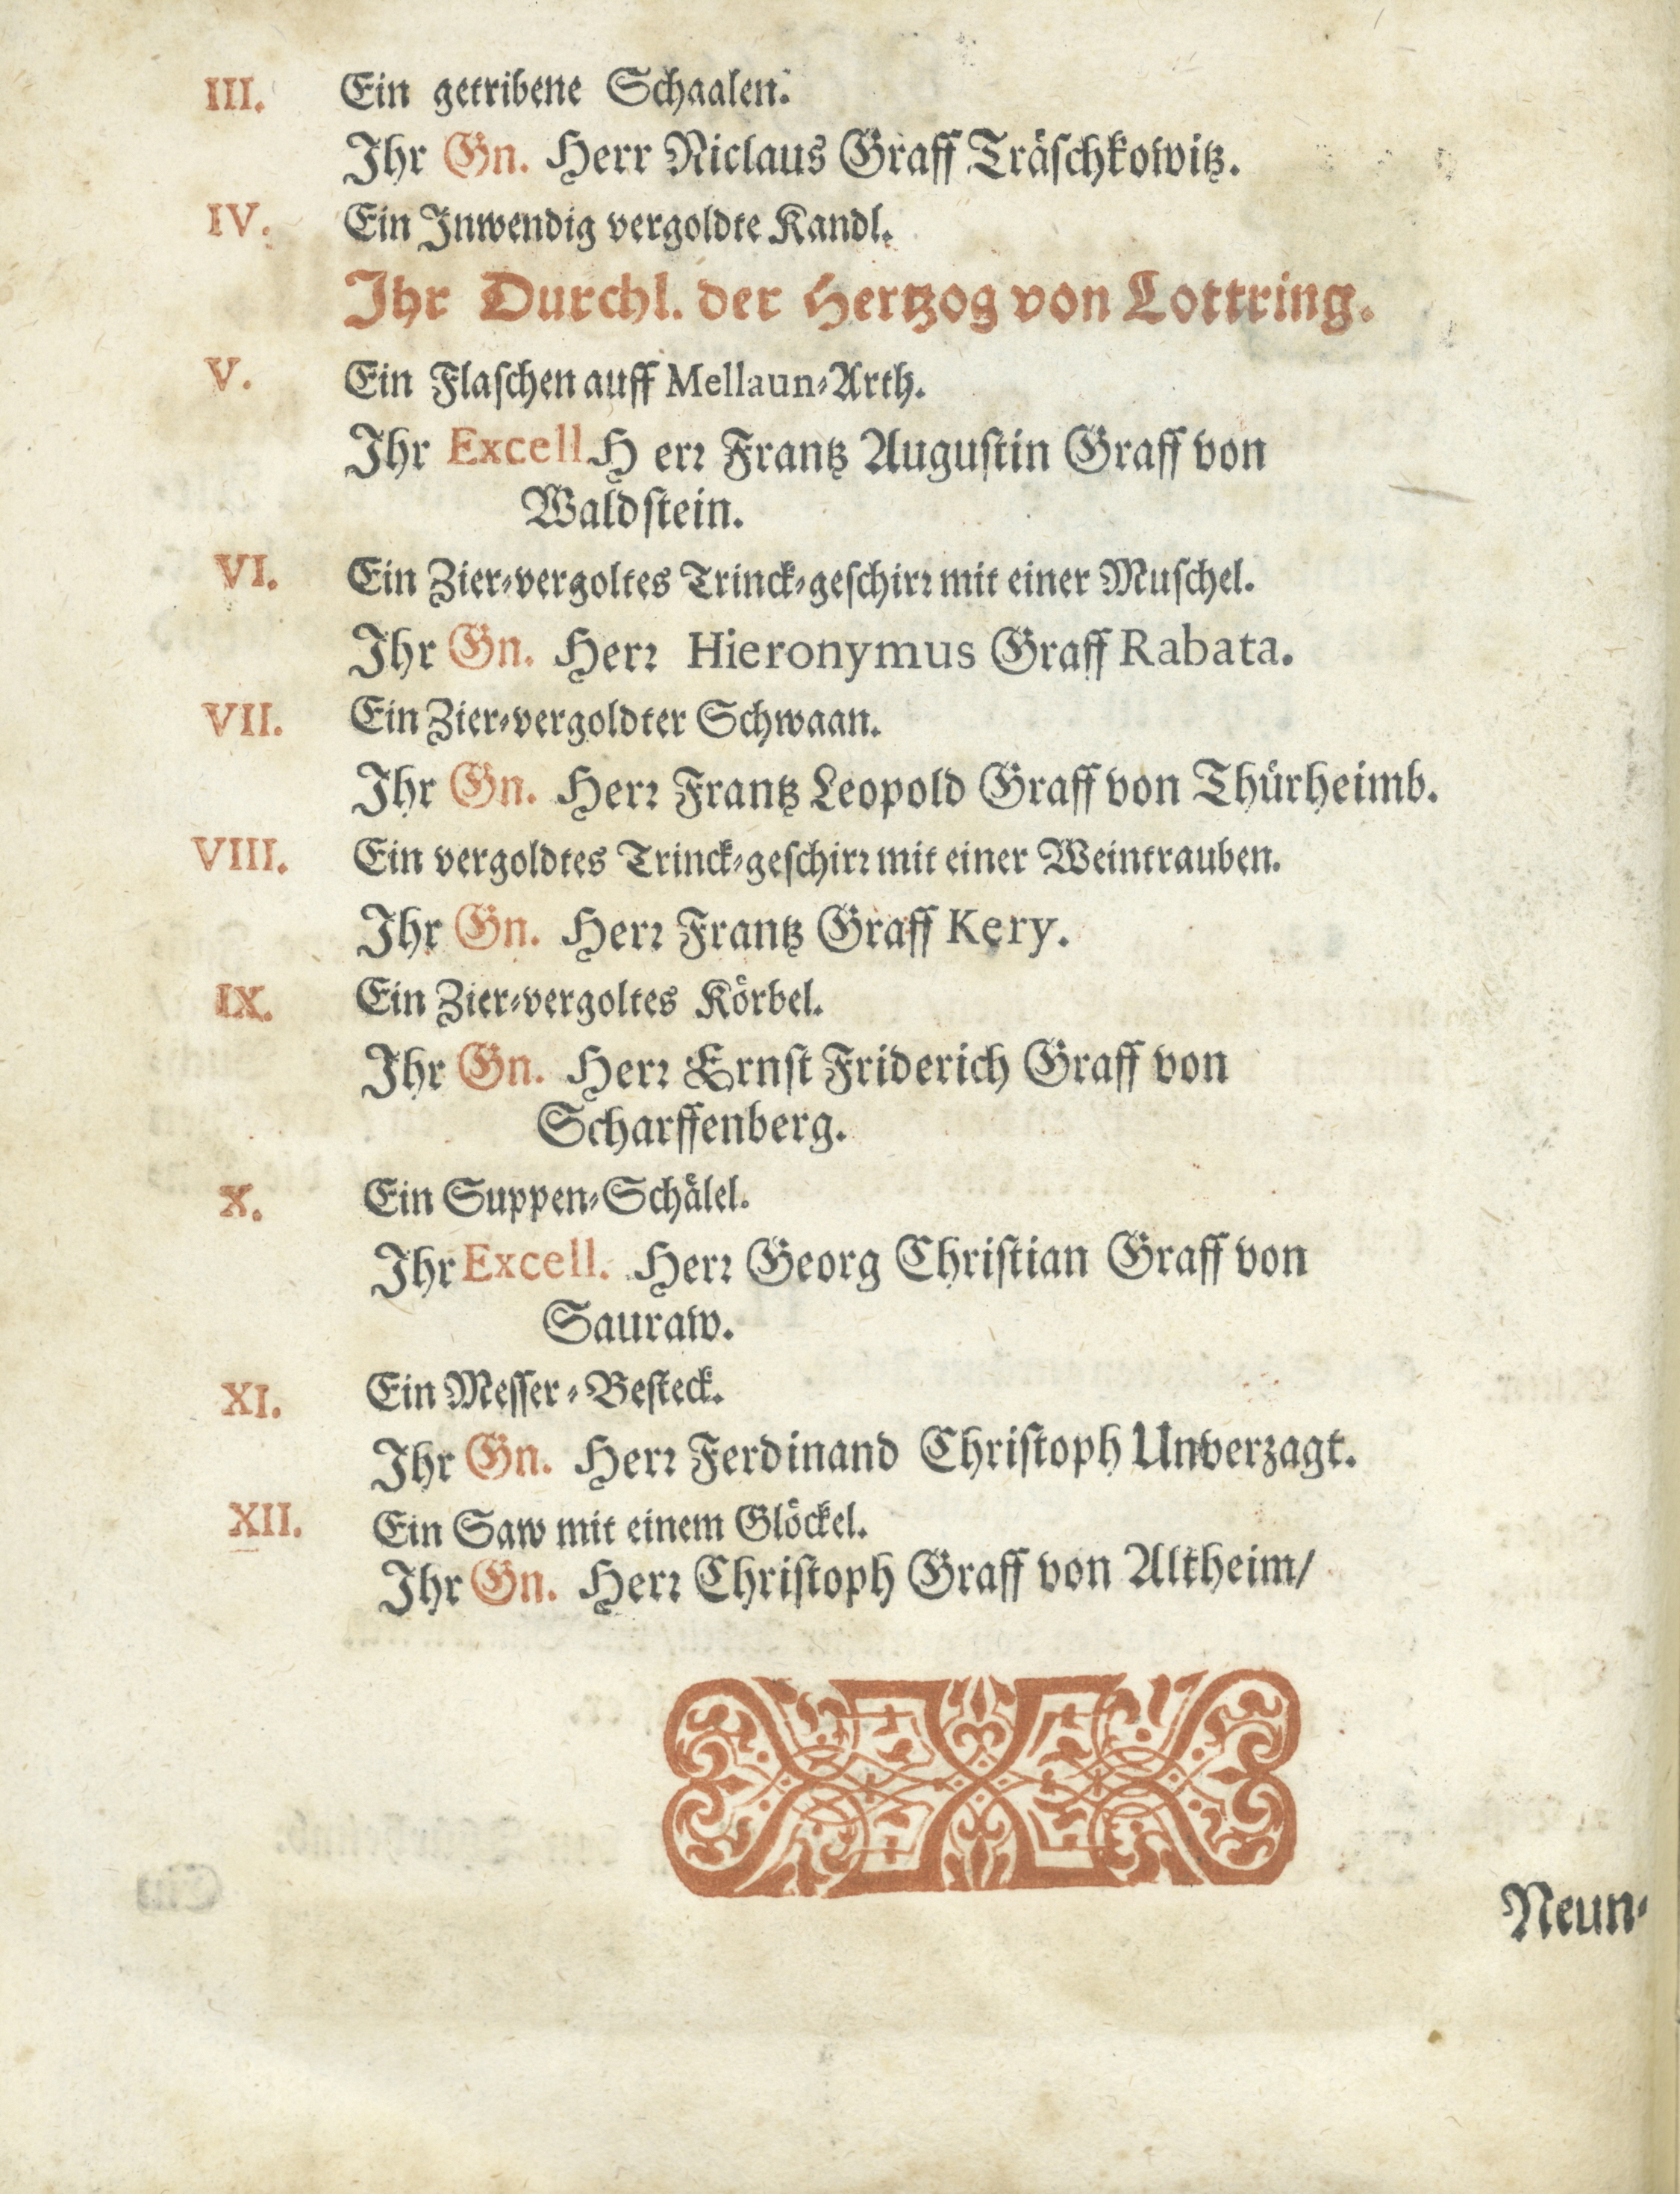 III. Ein getribene Schaalen.
Ihr Gn. Herr Niclaus Graff Träschkowitz.
IV. Ein Inwendig vergoldte Kandl.
Ihr Durchl. der Hertzog von Lottring.
V. Ein Flaschen auff Mellaun-Arth.
Ihr Excell. H err Frantz Augustin Graff von
Waldstein.
VI. Ein Zier-vergoltes Trinck-geschirr mit einer Muschel.
Ihr Gn. Herr Hieronymus Graff Rabata.
VII. Ein Zier-vergoldter Schwaan.
Ihr Gn. Herr Frantz Leopold Graff von Thürheimb.
VIII. Ein vergoldtes Trinck-geschirr mit einer Weintrauben.
Ihr Gn. Herr Frantz Graff Kery.
IX. Ein Zier-vergoltes Körbel.
Ihr Gn. Herr Ernst Friderich Graff von
Scharffenberg.
X. Ein Suppen-Schälel.
Ihr Excell. Herr Georg Christian Graff von
Sauraw.
XI. Ein Messer-Besteck.
Ihr Gn. Herr Ferdinand Christoph Unverzagt.
XII. Ein Saw mit einem Glöckel.
Ihr Gn. Herr Christoph Graff von Altheim/
Neun-